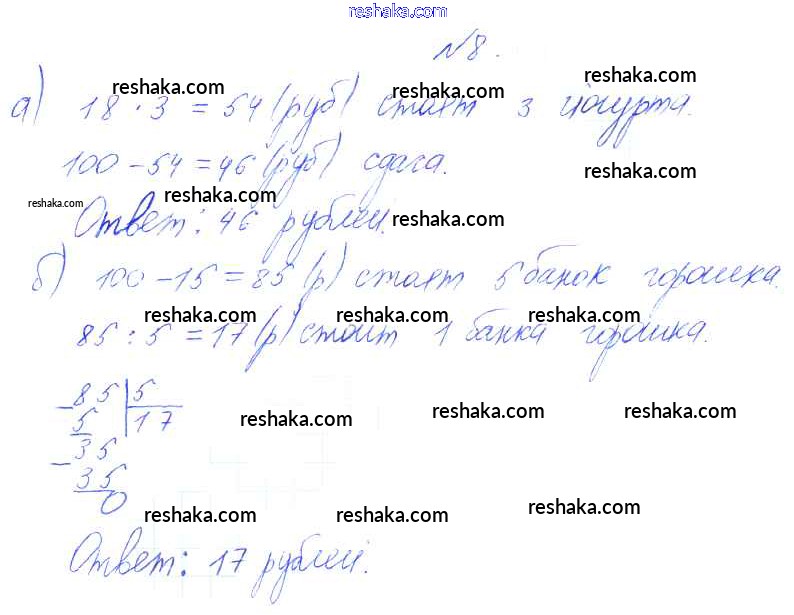 reshaka.com
№8.
reshaka.com reshaka.com reshaka.com
а) 18 · 3 = 54 (руб) стоят 3 йогурта.
100 - 54 = 46 (руб) сдача.
reshaka.com
reshaka.com reshaka.com reshaka.com
Ответ: 46 рублей.
б) 100 - 15 = 85 (р) стоят 5 банок горошка.
reshaka.com reshaka.com reshaka.com
85 : 5 = 17 (р) стоит 1 банка горошка.
- 85 | 5
5 | 17
reshaka.com reshaka.com reshaka.com
- 35
35
0
reshaka.com reshaka.com reshaka.com
Ответ: 17 рублей.